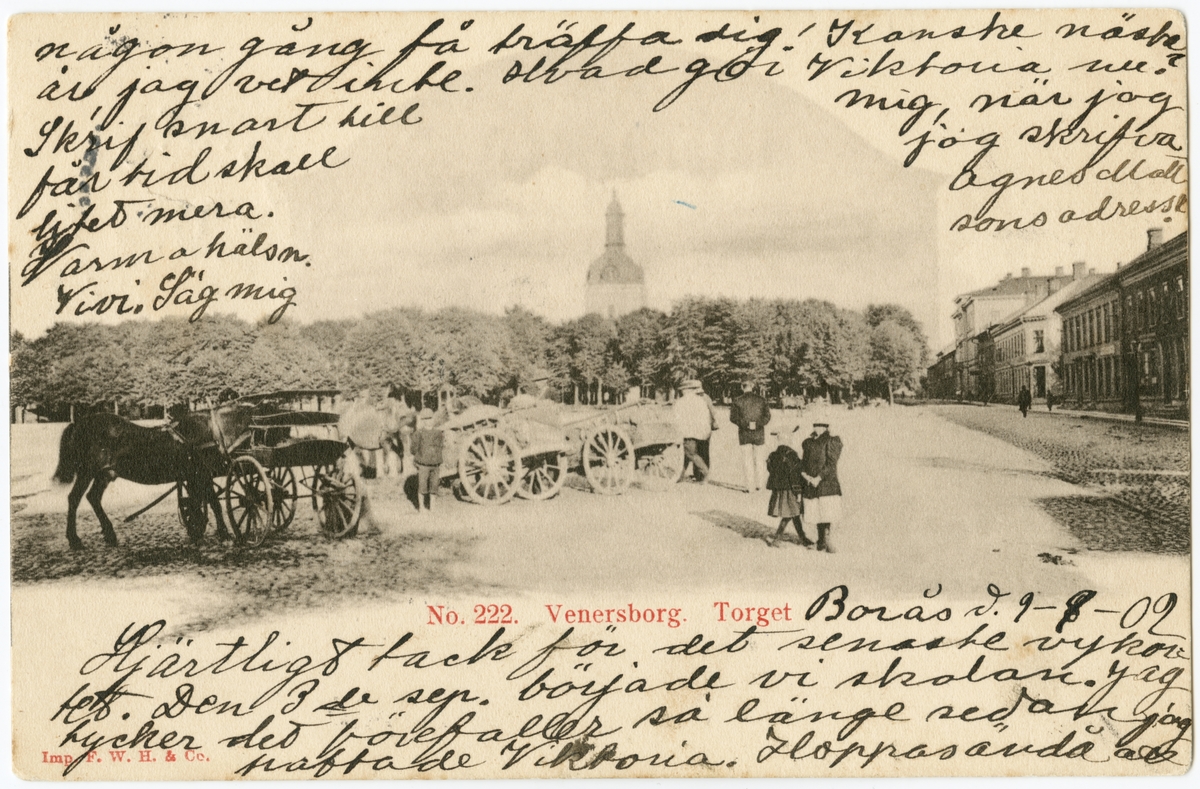 någon gång få träffa dig! Kanske nästa
år jag vet inte. Hvad gör Viktoria nu?
Skrif snart till mig, när jag
får tid skall jag skrifva
litet mera. Agnes Matt
Varma hälsn. sons adress
Vivi. Säg mig
No. 222. Venersborg. Torget
Borås d. 9-9-02
Hjärtligt tack för det senaste vykor-
tet. Den 3 de sep. började vi skolan. Jag
tycker det förefaller så länge sedan jag
träffade Viktoria. Hoppas ändå att
Imp. F. W. H. & Co.